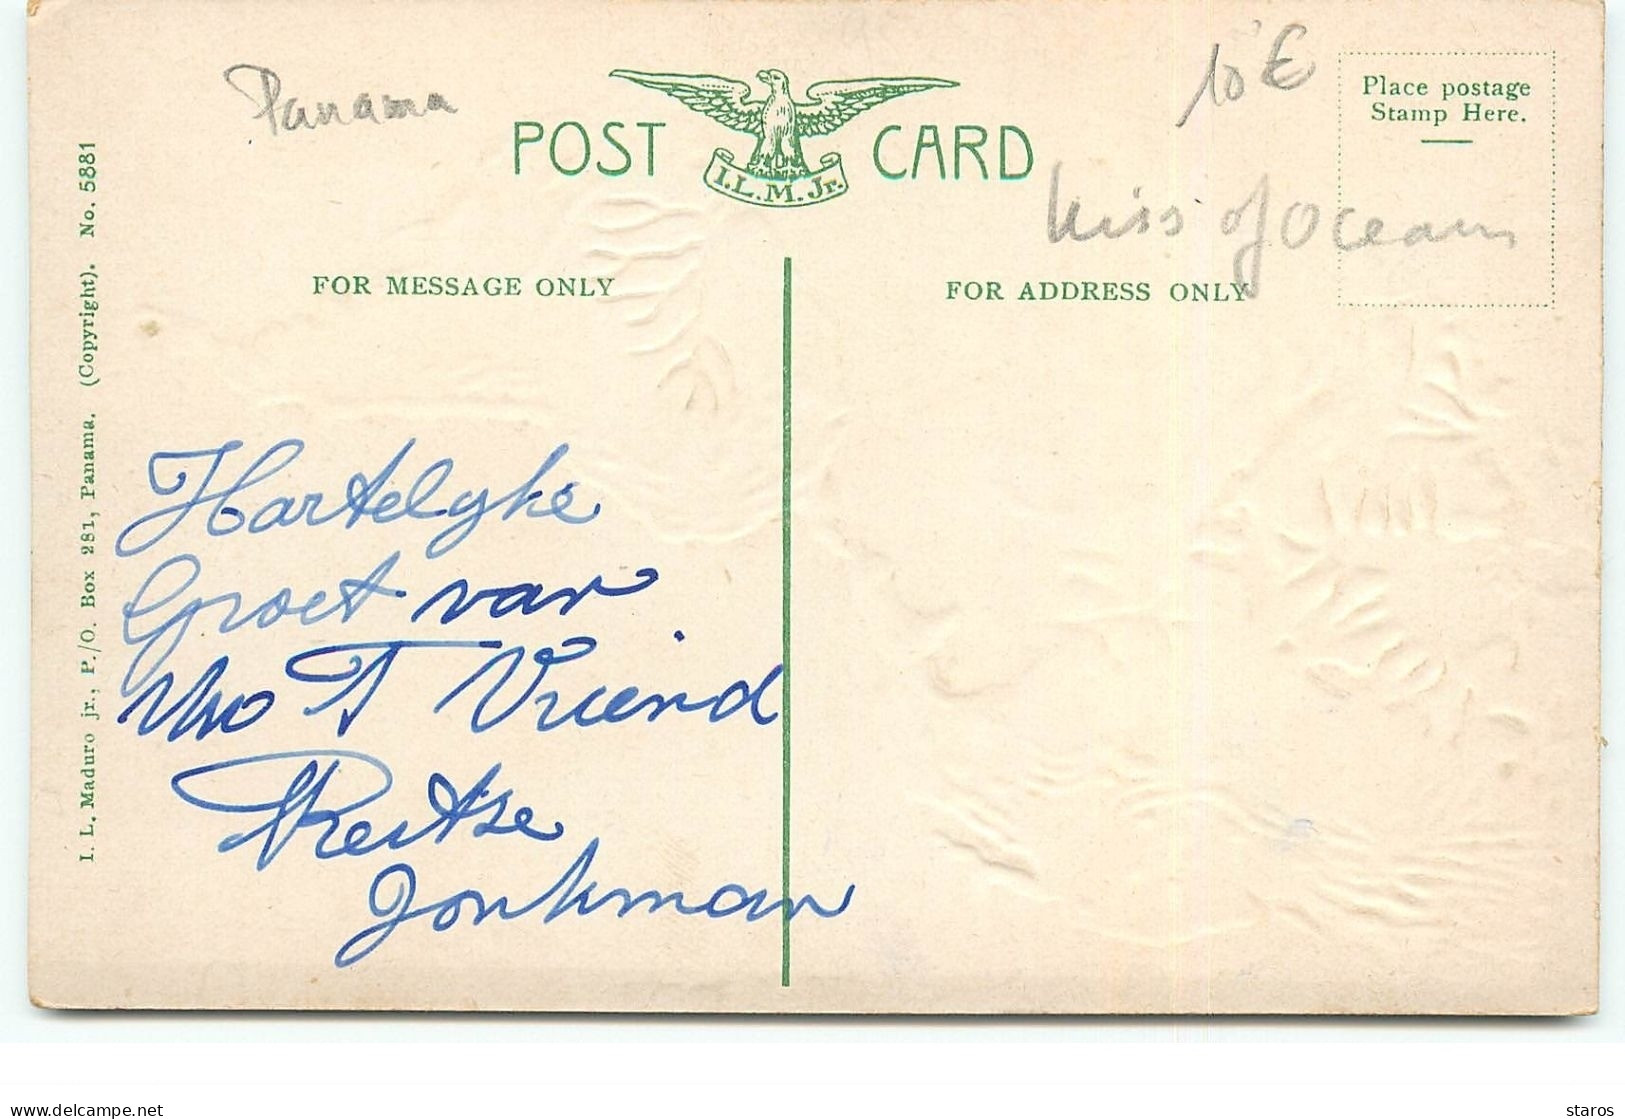 Panama
10 €
POST CARD
I.L.M. Jr.
Place postage
Stamp Here.
Kiss of Oceans
FOR MESSAGE ONLY
FOR ADDRESS ONLY
I. L. Maduro jr., P./O. Box 281, Panama. (Copyright). No. 5881
Hartelyke
Groet van
T Vriend
Reitse
Jonkman
delcampe.net
staros